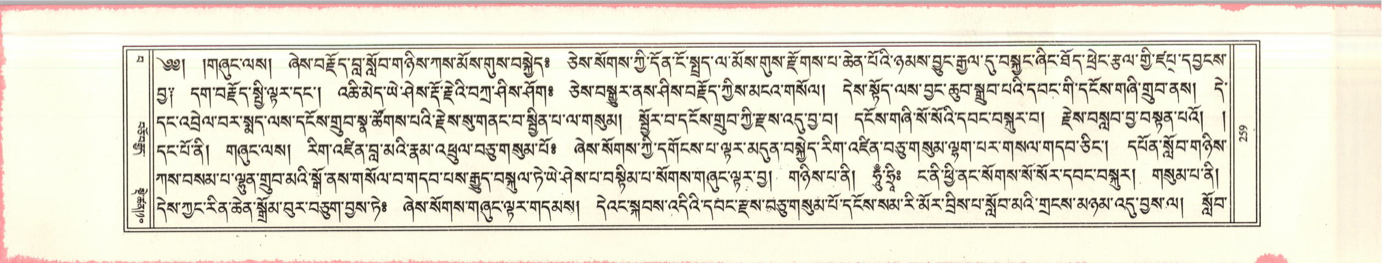 ༄༅། །གཞུང་ལས། ཞེས་བརྗོད་བླ་སློབ་གཉིས་ཀས་མོས་གུས་བསྐྱེད༔ ཅེས་སོགས་ཀྱི་དོན་ངོ་སྤྲད་ལ་མོས་གུས་རྫོགས་པ་ཆེན་པོའི་ཉམས་བྱུང་རྒྱལ་དུ་བསྐྱང་ཞིང་ཐོད་ཕྲེང་རྩལ་གྱི་ཛཔ྄་དབྱངས་
བྱ༔ དག་བརྗོད་སྤྱི་ལྟར་དང་། འཆི་མེད་ཡེ་ཤེས་རྡོ་རྗེའི་བཀྲ་ཤིས་ཤོག༔ ཅེས་བསྒྱུར་ནས་ཤིས་བརྗོད་ཀྱིས་མངའ་གསོལ། དེས་སྟོད་ལས་བྱང་ཆུབ་སྒྲུབ་པའི་དབང་གི་དངོས་གཞི་གྲུབ་ནས། དེ་
དང་འབྲེལ་བར་སྨད་ལས་དངོས་གྲུབ་སྣ་ཚོགས་པའི་རྗེས་སུ་གནང་བ་སྦྱིན་པ་ལ་གསུམ། སྦྱོར་བ་དངོས་གྲུབ་ཀྱི་རྫས་འདུ་བྱ་བ། དངོས་གཞི་སོ་སོའི་དབང་བསྐུར་བ། རྗེས་བསླབ་བྱ་བསྟན་པའོ། །
དང་པོ་ནི། གཞུང་ལས། རིག་འཛིན་བླ་མའི་རྣམ་འཕྲུལ་བཅུ་གསུམ་པོ༔ ཞེས་སོགས་ཀྱི་དགོངས་པ་ལྟར་མདུན་བསྐྱེད་རིག་འཛིན་བཅུ་གསུམ་ལྷག་པར་གསལ་གདབ་ཅིང་། དཔོན་སློབ་གཉིས་
ཀས་བསམ་པ་ལྷུན་གྲུབ་མའི་སྒོ་ནས་གསོལ་བ་གདབ་པས་རྒྱུད་བསྐུལ་ཏེ་ཡེ་ཤེས་པ་བསྟིམ་པ་སོགས་གཞུང་ལྟར་བྱ། གཉིས་པ་ནི། ཧཱུྃ་ཧྲཱི༔ ང་ནི་ཕྱི་ནང་སོགས་སོ་སོར་དབང་བསྐུར། གསུམ་པ་ནི།
དེས་ཀྱང་རིན་ཆེན་སྒྲོམ་བུར་བཅུག་བྱས་ཏེ༔ ཞེས་སོགས་གཞུང་ལྟར་གདམས། དེའང་སྐབས་འདིའི་དབང་རྫས་བཅུ་གསུམ་པོ་དངོས་སམ་རི་མོར་བྲིས་པ་སློབ་མའི་གྲངས་མཉམ་འདུ་བྱས་ལ། སློབ་
259